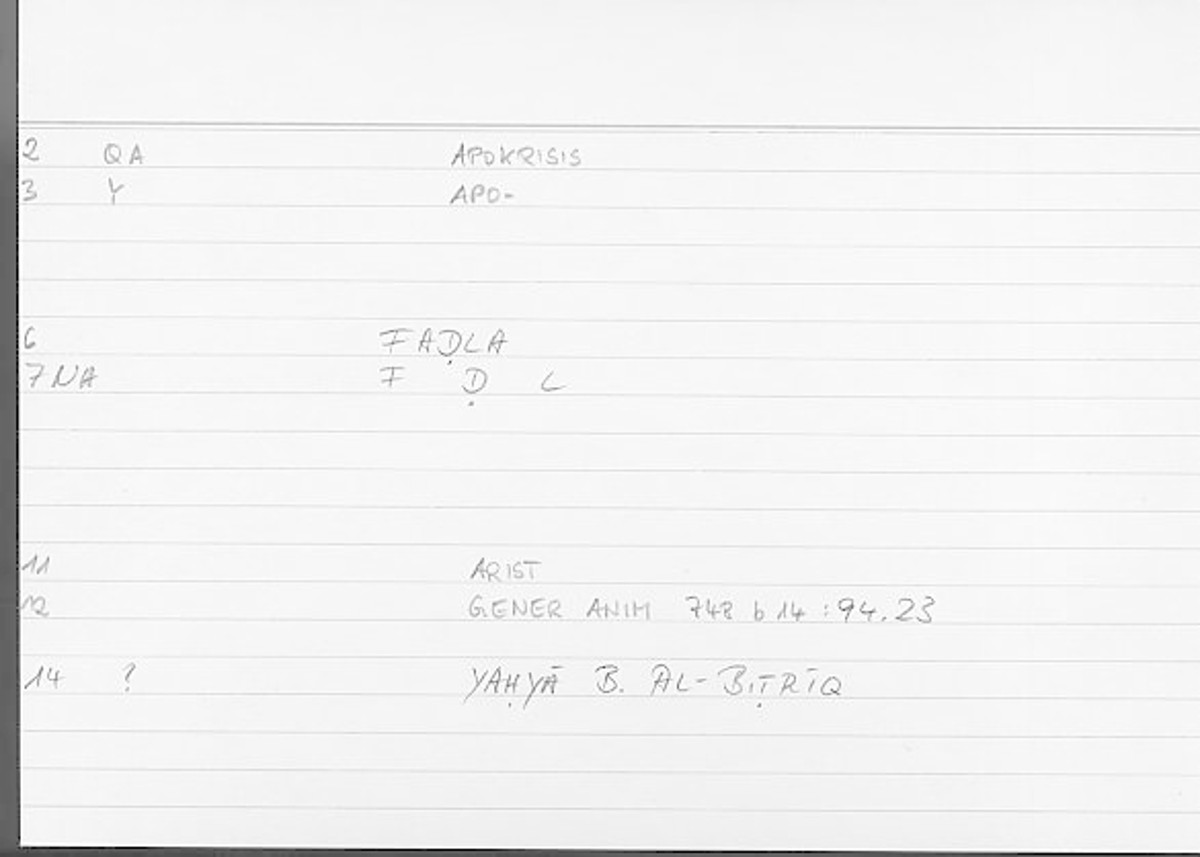 2 QA APOKRISIS
3 Y APO-
6 FAḌLA
7 NA F Ḍ L
11 ARIST
12 GENER ANIM 748 b 14 : 94.23
14 ? YAḤYĀ B. AL-BIṬRĪQ